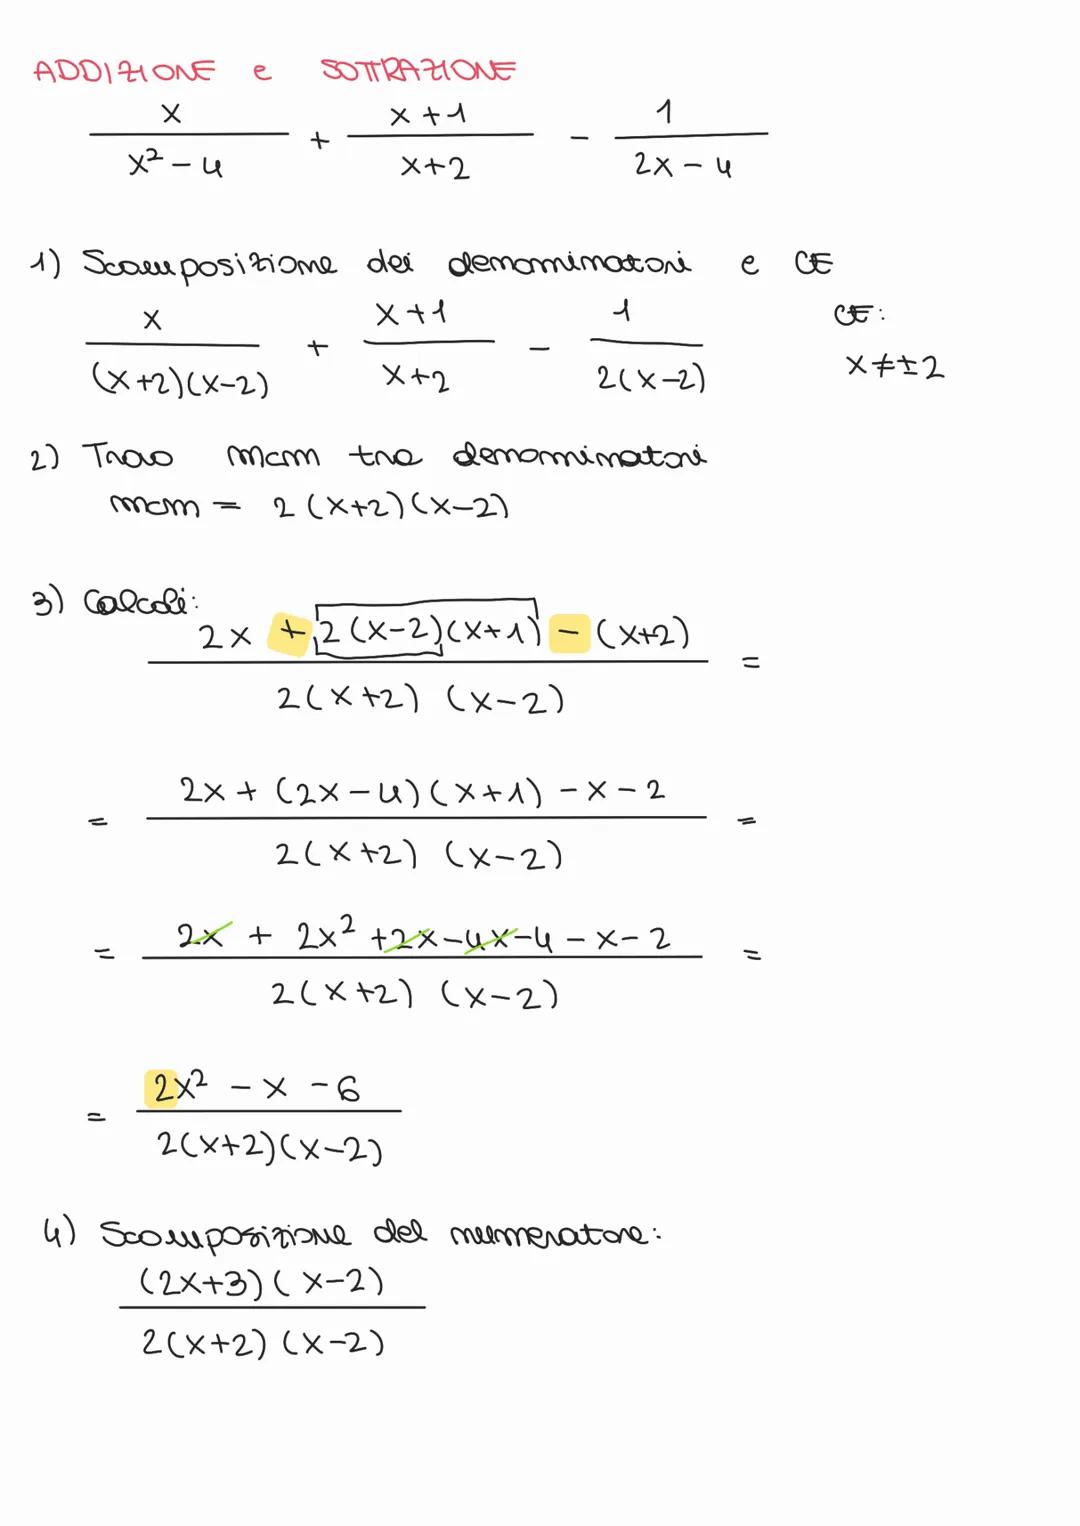 ADDIZIONE e SOTTRAZIONE
x/(x² - 4) + (x + 1)/(x + 2) - 1/(2x - 4)
1) Scomposizione dei denominatori e CE
x/((x+2)(x-2)) + (x+1)/(x+2) - 1/(2(x-2)) CE: x ≠ ± 2
2) Trovo mcm tra denominatori
mcm = 2(x+2)(x-2)
3) Calcoli:
(2x + 2(x-2)(x+1) - (x+2))/(2(x+2)(x-2)) =
= (2x + (2x-4)(x+1) - x - 2)/(2(x+2)(x-2)) =
= (2x + 2x² + 2x - 4x - 4 - x - 2)/(2(x+2)(x-2)) =
= (2x² - x - 6)/(2(x+2)(x-2))
4) Scomposizione del numeratore:
((2x+3)(x-2))/(2(x+2)(x-2))